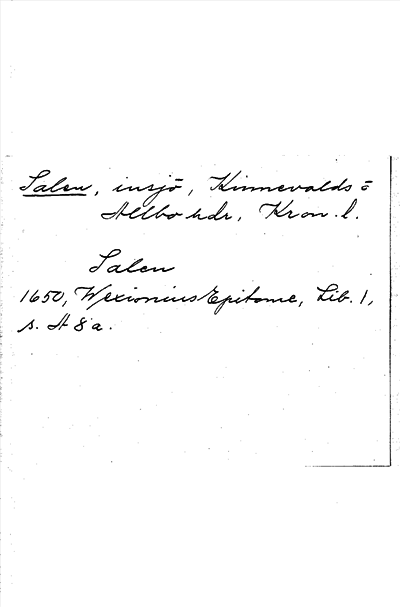 Salen, insjö, Kinnevalds o
Allbo hdr, Kron. l.
Salen
1650, Wexionius Epitome, Lib. 1,
s. A 8 a.